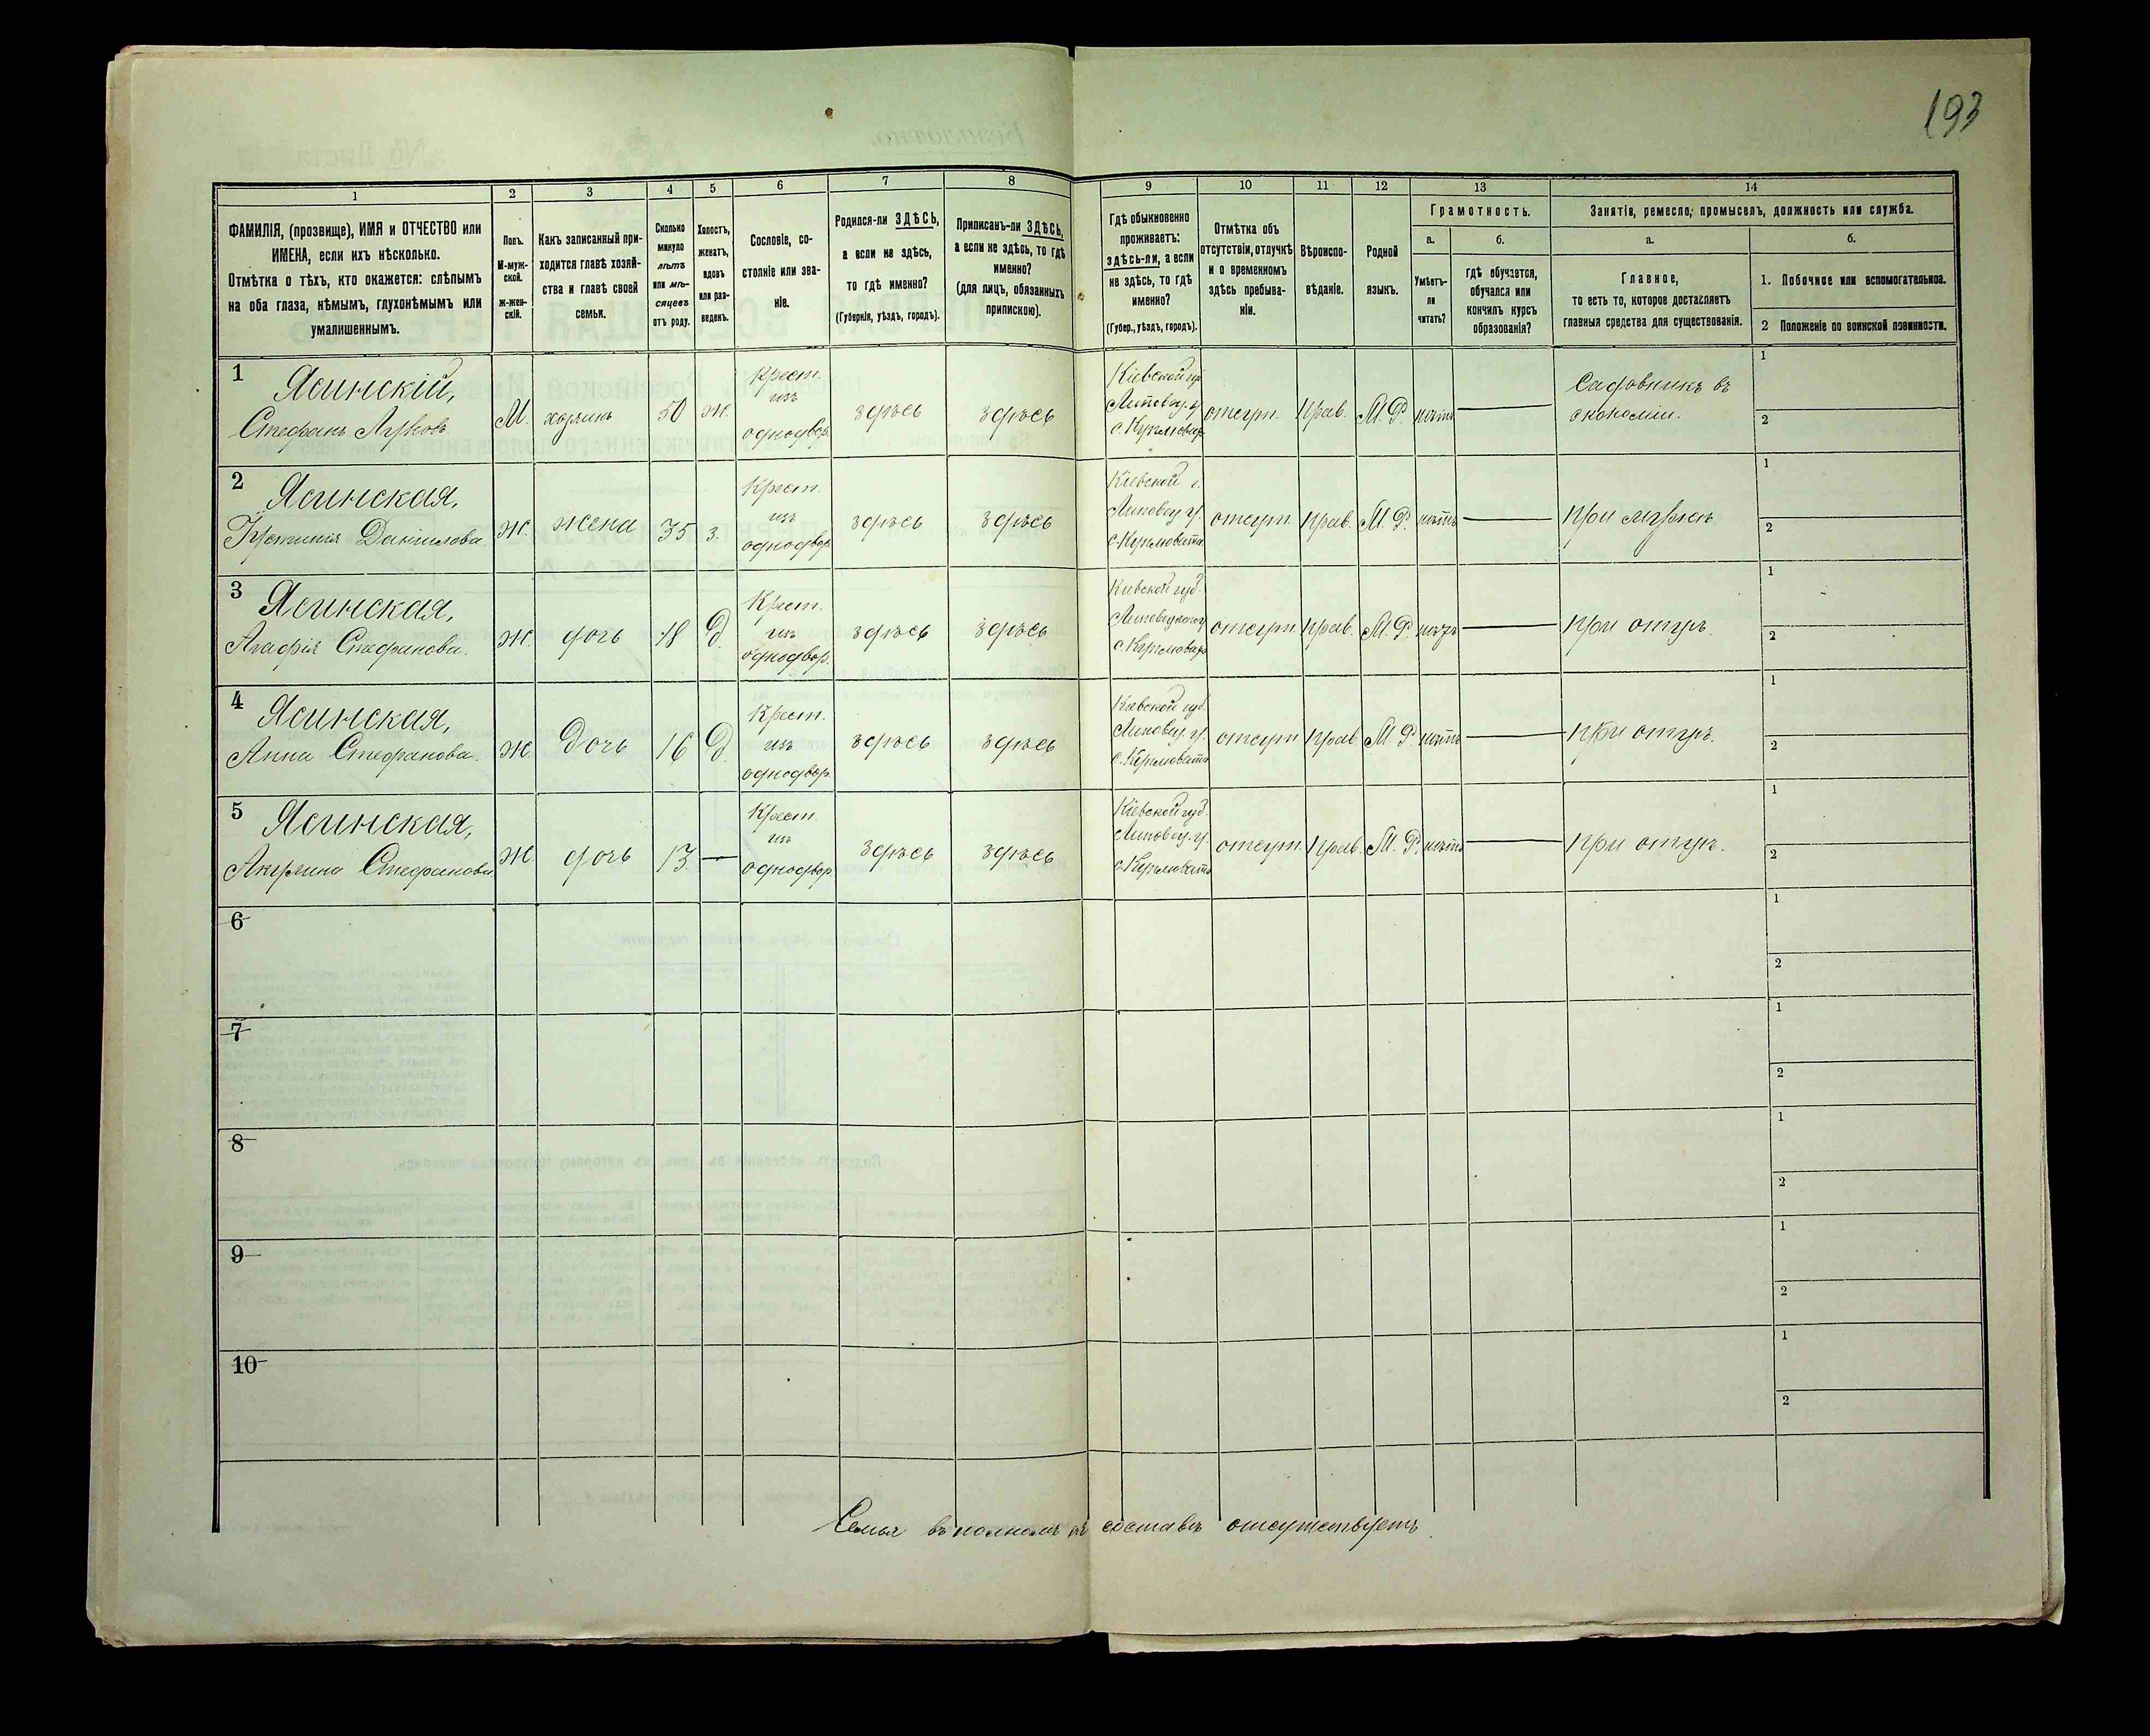 193
1
2
3
4
5
6
7
8
9
10
11
12
13
14
ФАМИЛІЯ, (прозвище), ИМЯ и ОТЧЕСТВО или
ИМЕНА, если ихъ нѣсколько.
Отмѣтка о тѣхъ, кто окажется: слѣпымъ
на оба глаза, нѣмымъ, глухонѣмымъ или
умалишеннымъ.
Полъ.
М-муж-
ской.
Ж-жен-
скій.
Какъ записанный при-
ходится главѣ хозяй-
ства и главѣ своей
семьи.
Сколько
минуло
лѣтъ
или мѣ-
сяцевъ
отъ роду.
Холостъ,
женатъ,
вдовъ
или раз-
веденъ.
Сословіе, со-
стояніе или зва-
ніе.
Родился-ли ЗДѢСЬ,
а если не здѣсь,
то гдѣ именно?
(Губернія, уѣздъ, городъ).
Приписанъ-ли ЗДѢСЬ,
а если не здѣсь, то гдѣ
именно?
(для лицъ, обязанныхъ
припискою).
Гдѣ обыкновенно
проживаетъ:
здѣсь-ли, а если
не здѣсь, то гдѣ
именно?
(Губер., уѣздъ, городъ).
Отмѣтка объ
отсутствіи, отлучкѣ
и о временномъ
здѣсь пребыва-
ніи.
Вѣроиспо-
вѣданіе.
Родной
языкъ.
Грамотность.
а.
Умѣетъ-
ли
читать?
б.
Гдѣ обучается,
обучался или
кончилъ курсъ
образованія?
Занятія, ремесло, промыселъ, должность или служба.
а.
Главное,
то есть то, которое доставляетъ
главныя средства для существованія.
б.
1. Побочное или вспомогательное.
2 Положеніе по воинской повинности.
1 Ясинскій,
Стефанъ Луковъ
М. хозяинъ 50 ж.
Крест.
изъ
однодвор.
здѣсь здѣсь
Кіевской губ
Липовец. у.
отсут. Прав. М. Р. нѣтъ —
Садовникъ въ
экономіи.
1
2
2 Ясинская,
Устинія Даніилова
Ж. жена 35 з.
Крест.
изъ
однодвор.
здѣсь здѣсь
Кіевской г.
Липовец. у.
отсут. прав. М. Р. нѣтъ —
при мужѣ
1
2
3 Ясинская,
Агафія Стефанова.
Ж. дочь 18 д.
Крест.
изъ
однодвор.
здѣсь здѣсь
Кіевской губ.
отсут. прав. М. Р. нѣтъ —
при отцѣ.
1
2
4 Ясинская,
Анна Стефанова.
Ж. дочь 16 д.
Крест.
изъ
однодвор.
здѣсь здѣсь
Кіевской губ.
Липовец. у.
отсут прав. М. Р. нѣтъ —
при отцѣ.
1
2
5 Ясинская,
Акулина Стефанова
Ж дочь 13. —
Крест.
изъ
однодвор
здѣсь здѣсь
Кіевской губ.
Липовец. у.
отсут. прав. М. Р. нѣтъ —
при отцѣ.
1
2
6
1
2
7
1
2
8
1
2
9
1
2
10
1
2
Семья въ полномъ составѣ отсутствуетъ.